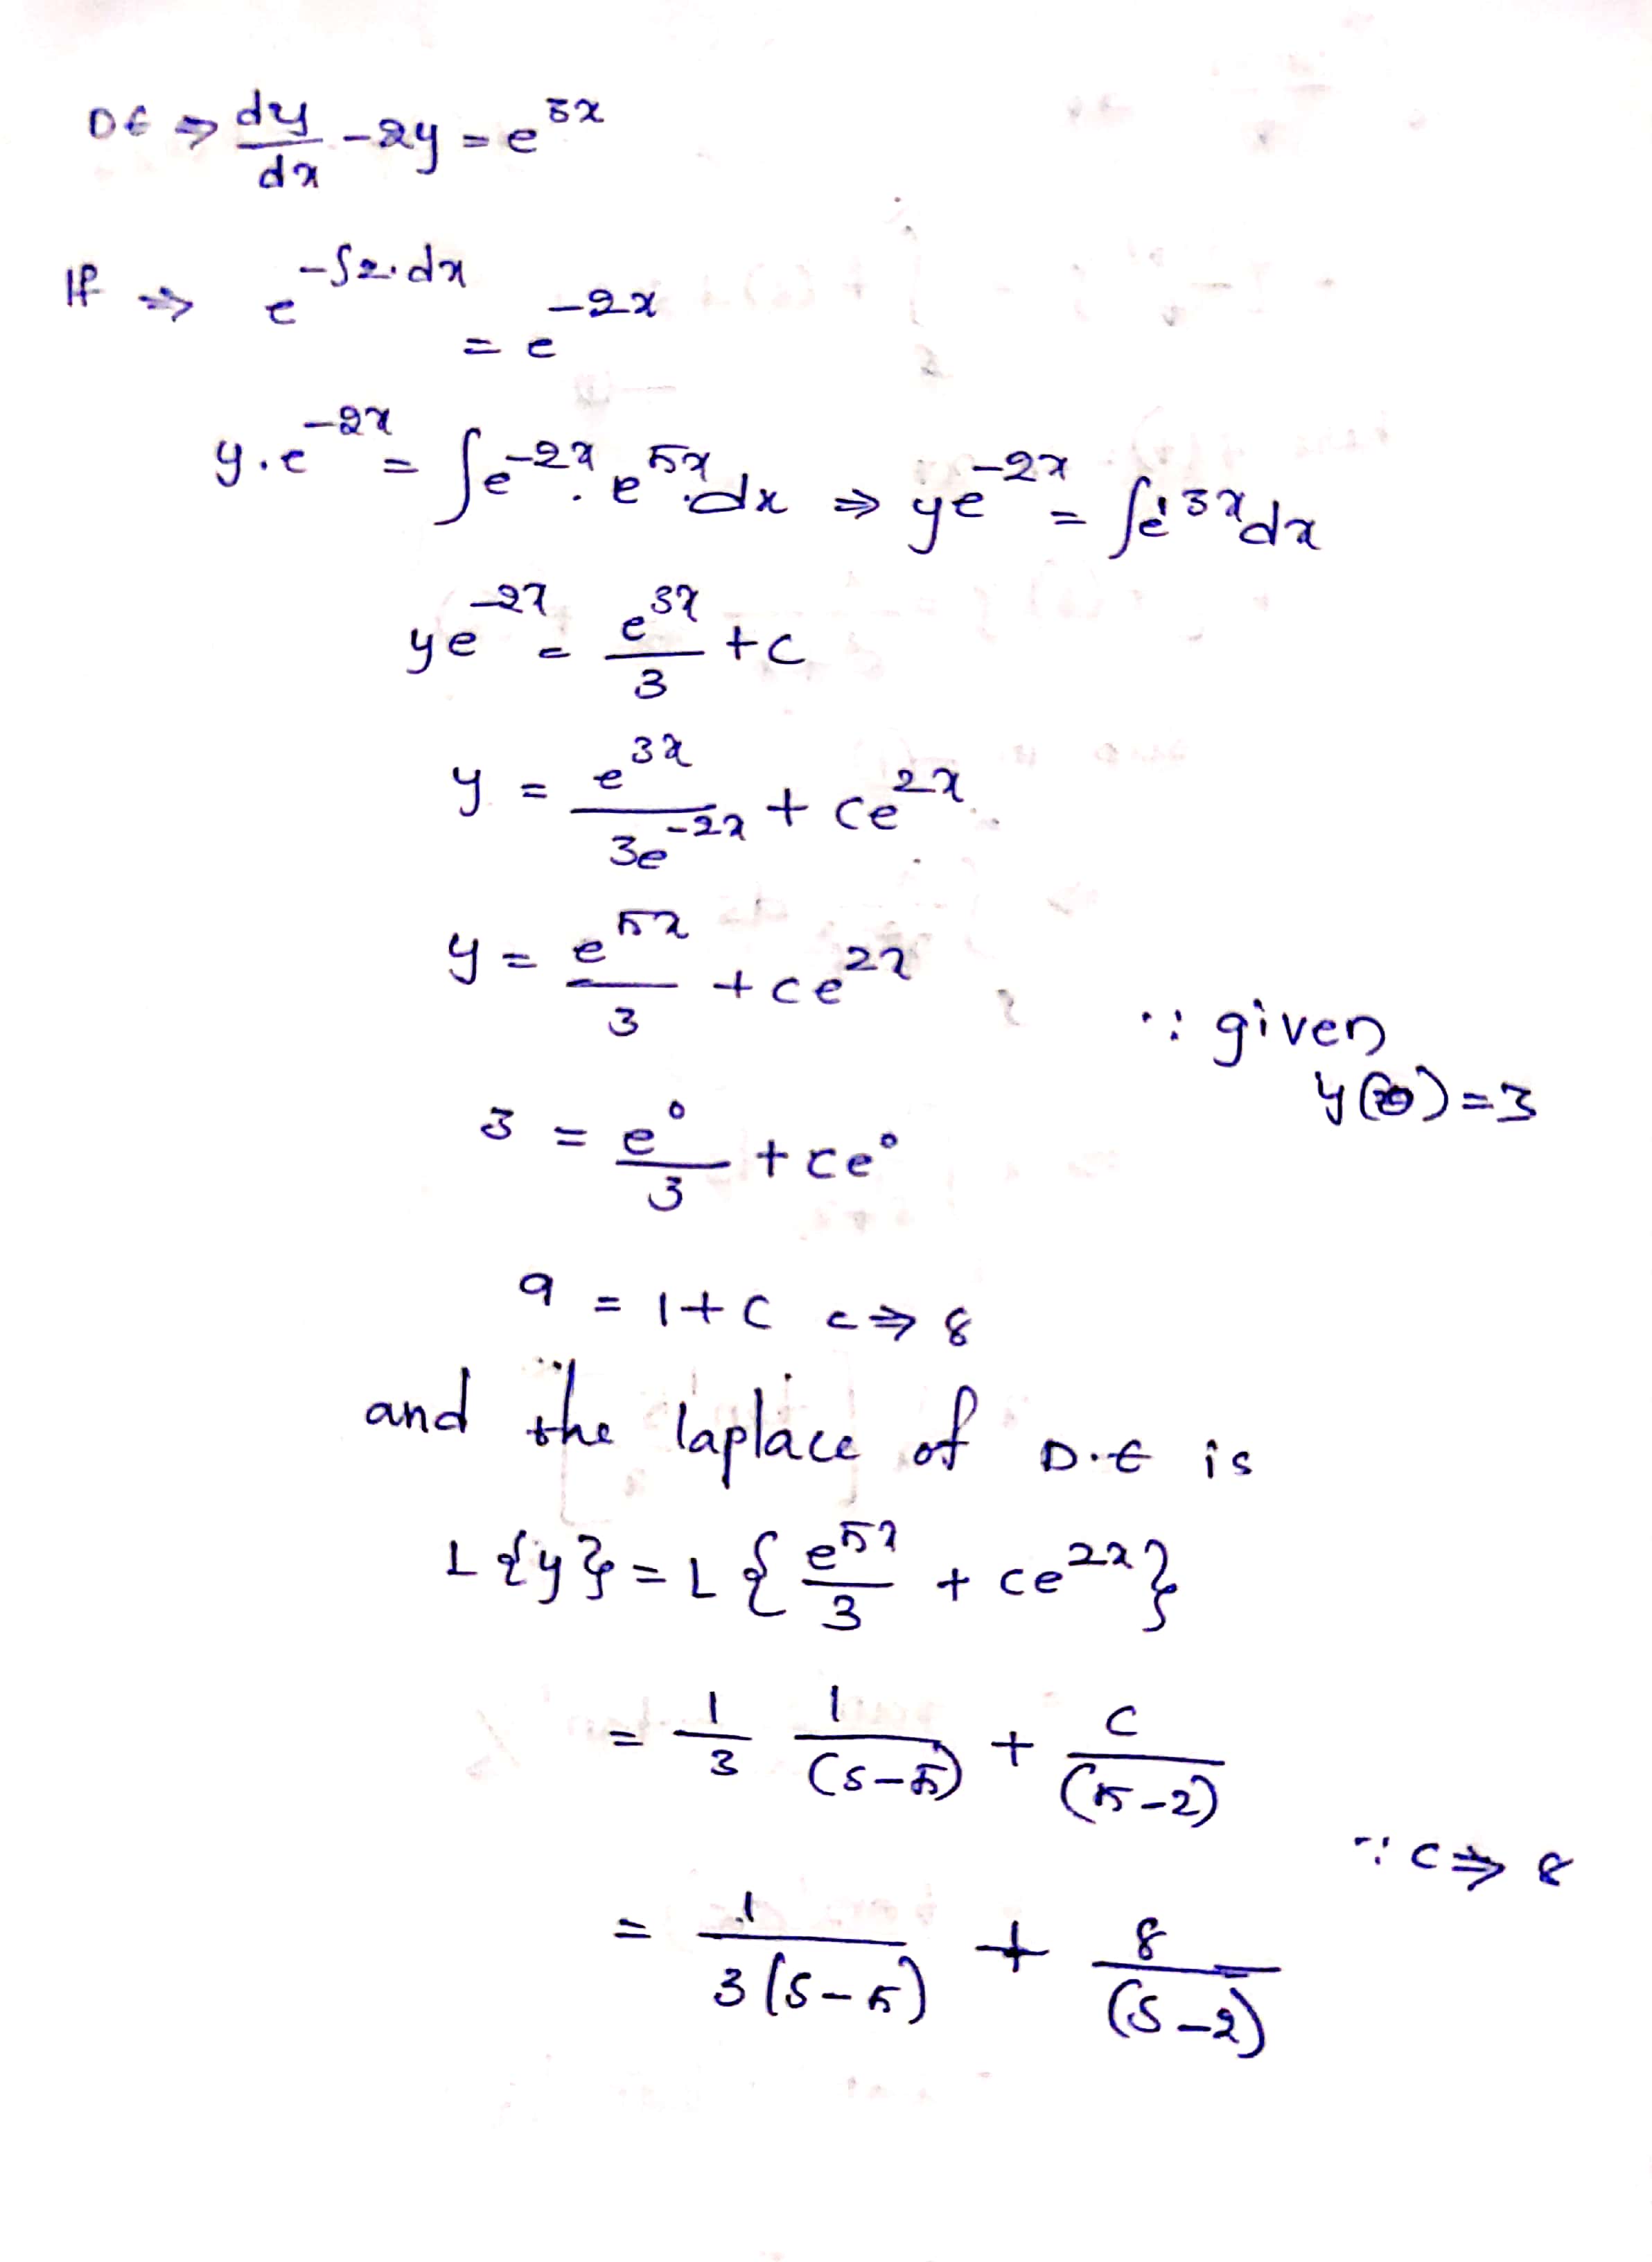 DE ⇒ dy/dx - 2y = e^5x
IF ⇒ e^-∫2.dx = e^-2x
y.e^-2x = ∫e^-2x . e^5x.dx ⇒ ye^-2x = ∫e^3x dx
ye^-2x = e^3x/3 + c
y = e^3x/3e^-2x + ce^2x
y = e^5x/3 + ce^2x
∵ given
y(0)=3
3 = e^0/3 + ce^0
9 = 1+c c⇒ 8
and the laplace of D.E is
L{y} = L{e^5x/3 + ce^2x}
= 1/3 1/(s-5) + c/(5-2)
∵ c⇒ 8
= 1/3(s-5) + 8/(s-2)